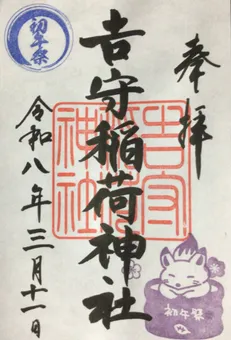 奉拝
吉守稲荷神社
吉守稲荷神社
令和八年三月十一日
初午祭
初午祭